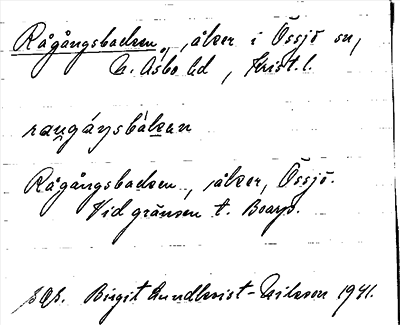 Rågångsbacken, åker i Össjö sn,
N. Åsbo hd, Krist. l.
raŋgáŋsbàkan
Rågångsbacken, åker, Össjö.
Vid gränsen t. Boarp.
Birgit Lundkvist-Nilsson 1941.